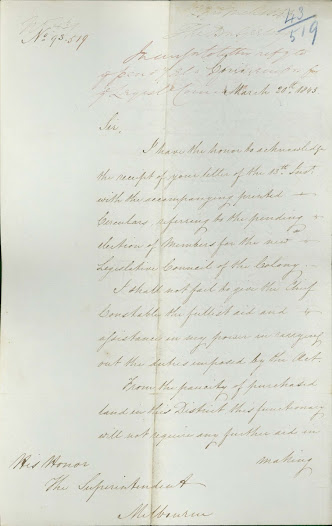 43
519
No 43.519
March 20th 1843
Sir,
I have the honor to acknowledge
the receipt of your letter of the 13th Inst
with the accompanying printed
Circulars, referring to the pending
election of Members for the new
Legislative Council of the Colony.
I shall not fail to give the Chief
Constable the fullest aid and
assistance in my power in carrying
out the duties imposed by the Act.
From the paucity of purchased
land in this District this functionary
will not require any further aid in
making
His Honor
The Superintendent
Melbourne